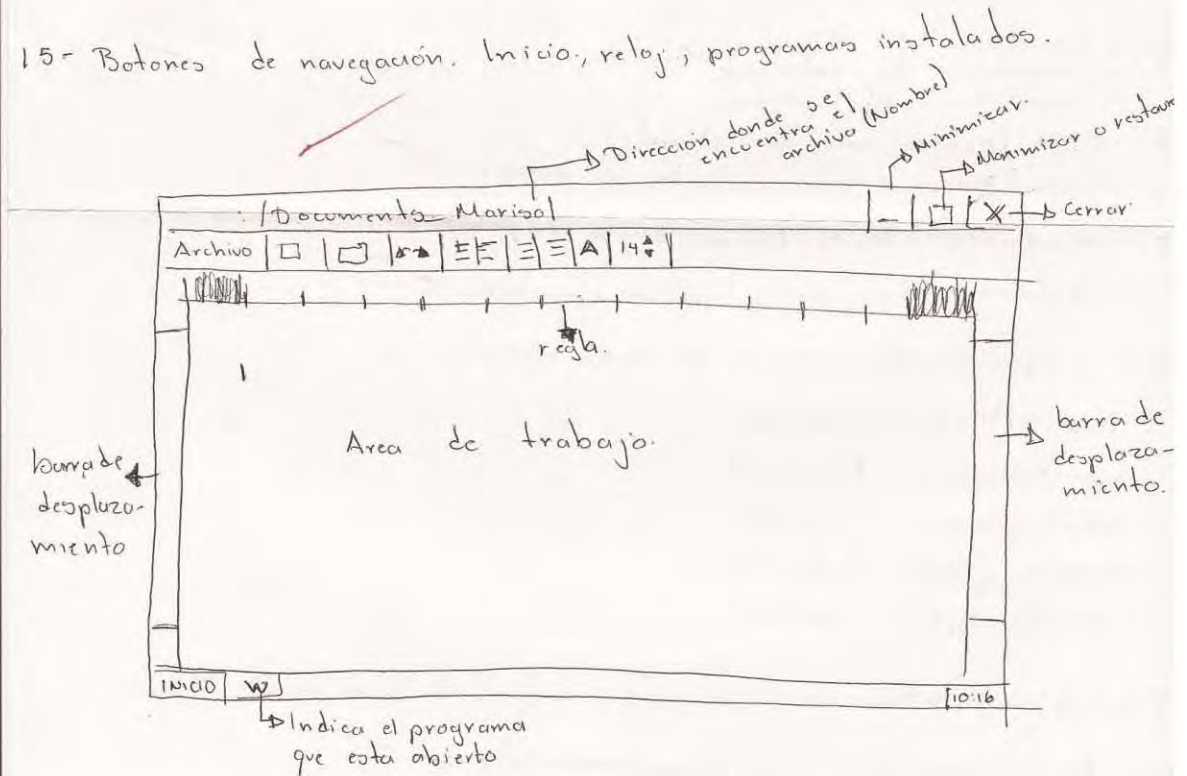 15- Botones de navegación. Inicio, reloj, programas instalados.
Dirección donde se
encuentra el
archivo (Nombre)
Minimizar.
Maximizar o restaur
:/Documents_Marisol
- X Cerrar.
Archivo A 14
regla.
Area de trabajo.
barra de
desplaza-
miento
barra de
desplaza-
miento.
INICIO W 10:16
Indica el programa
que esta abierto